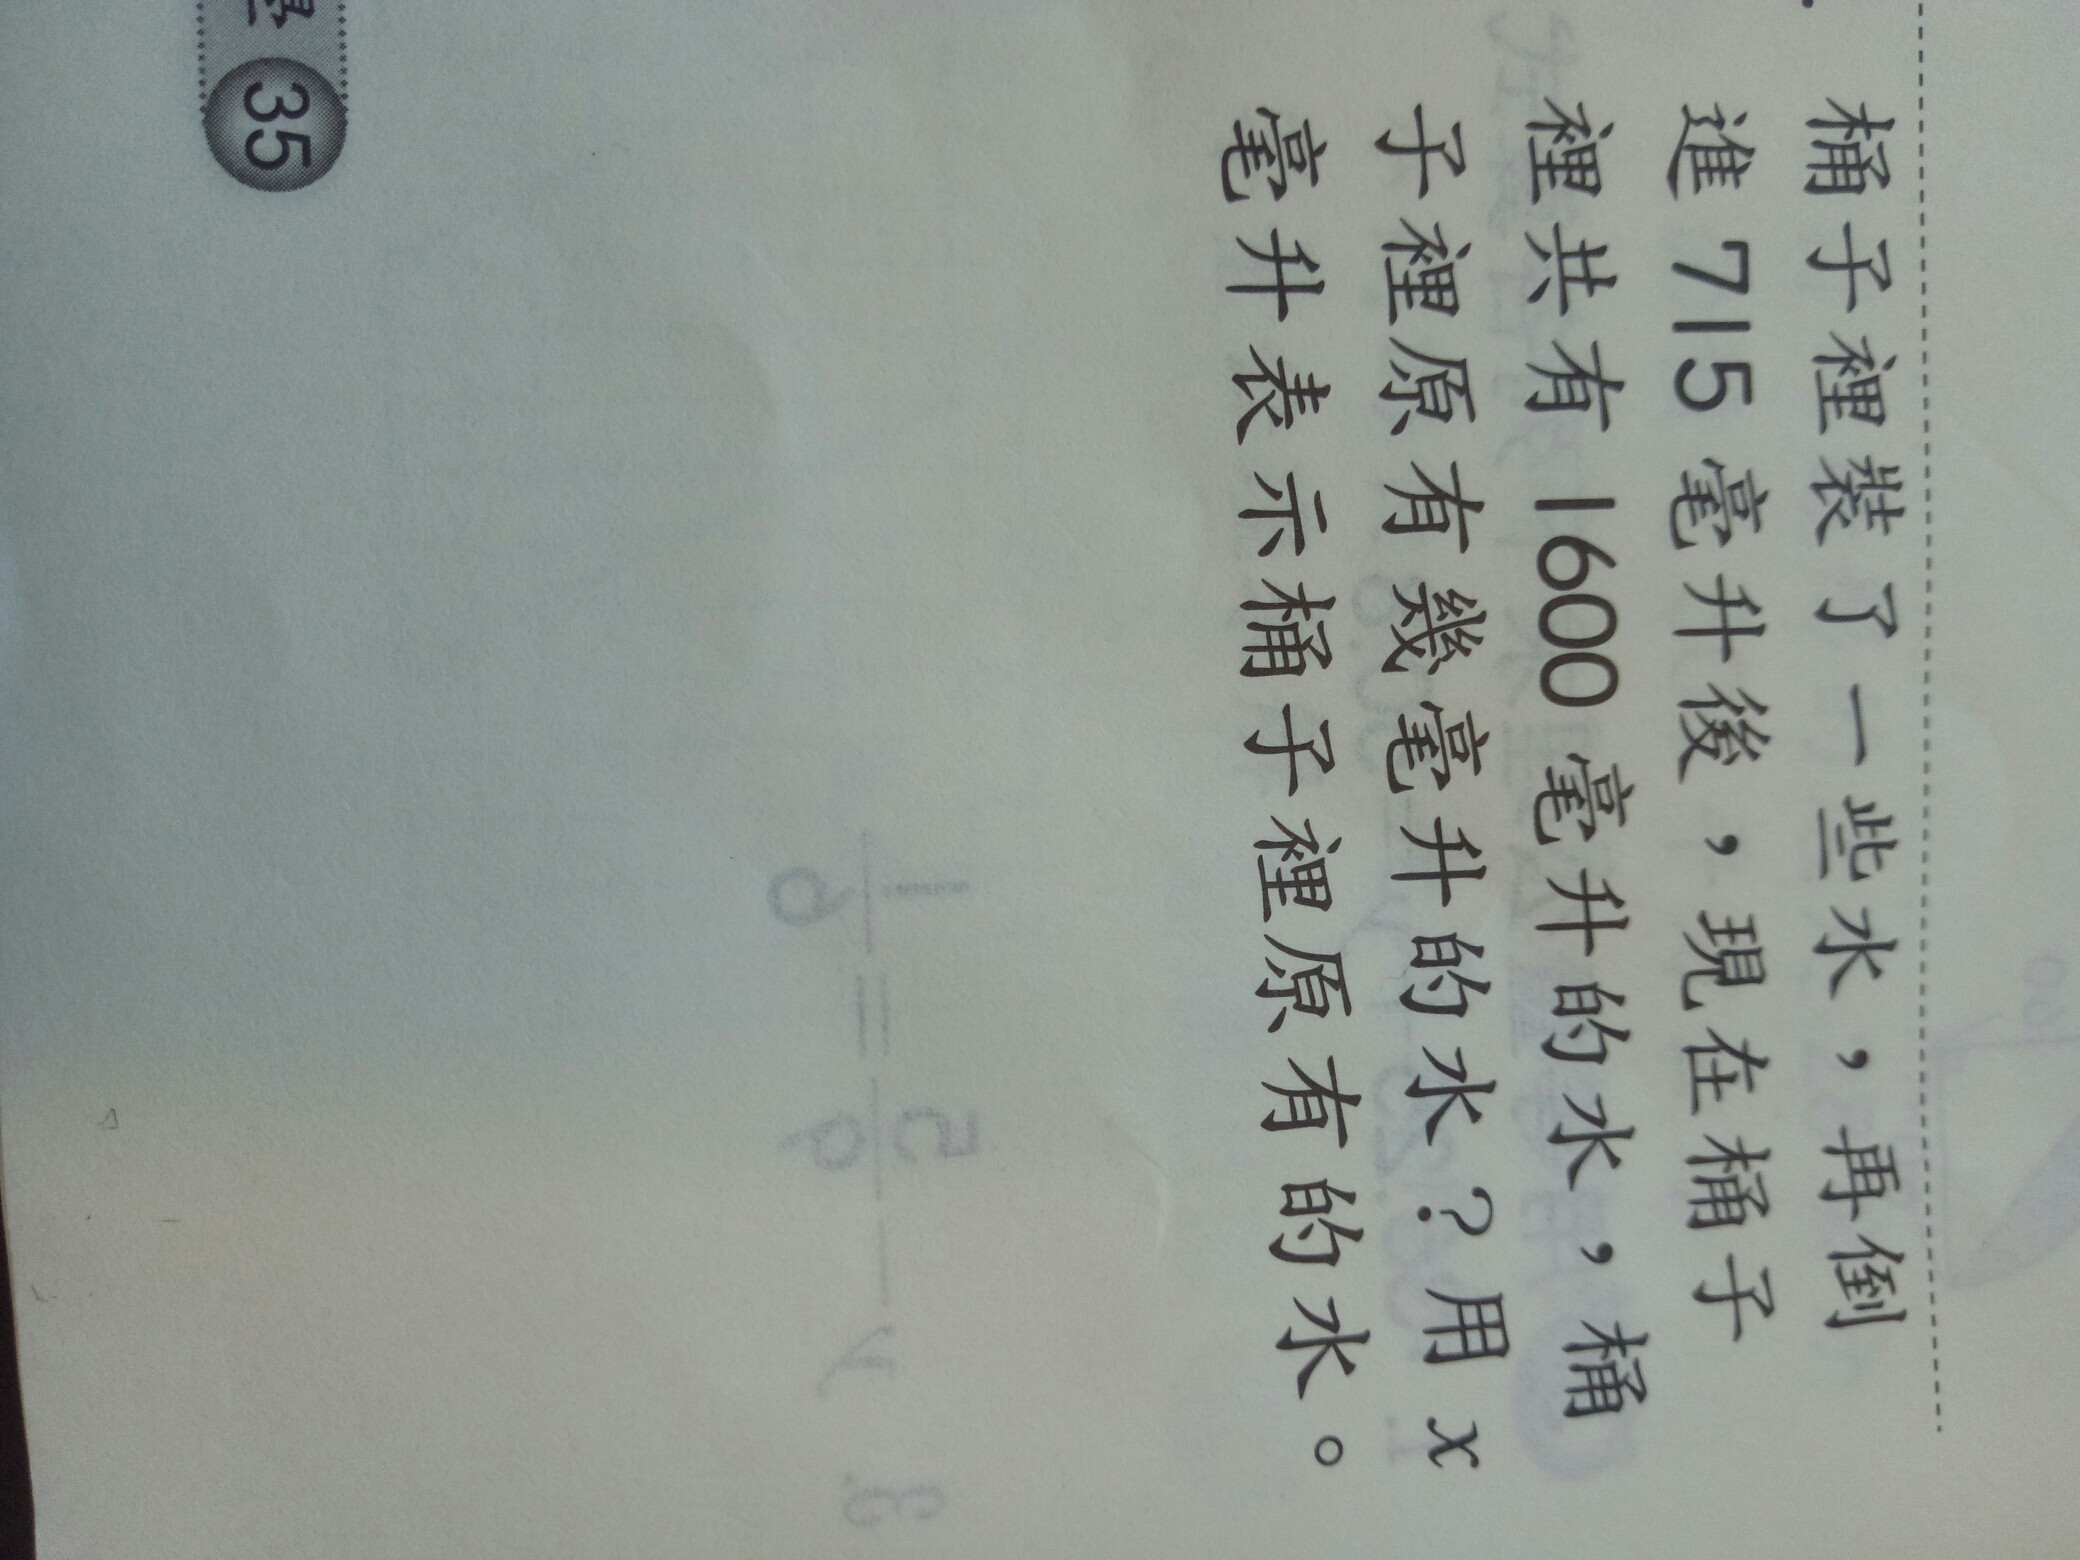 桶子裡裝了一些水，再倒
進 715 毫升後，現在桶子
裡共有 1600 毫升的水，桶
子裡原有幾毫升的水？用 x
毫升表示桶子裡原有的水。
35